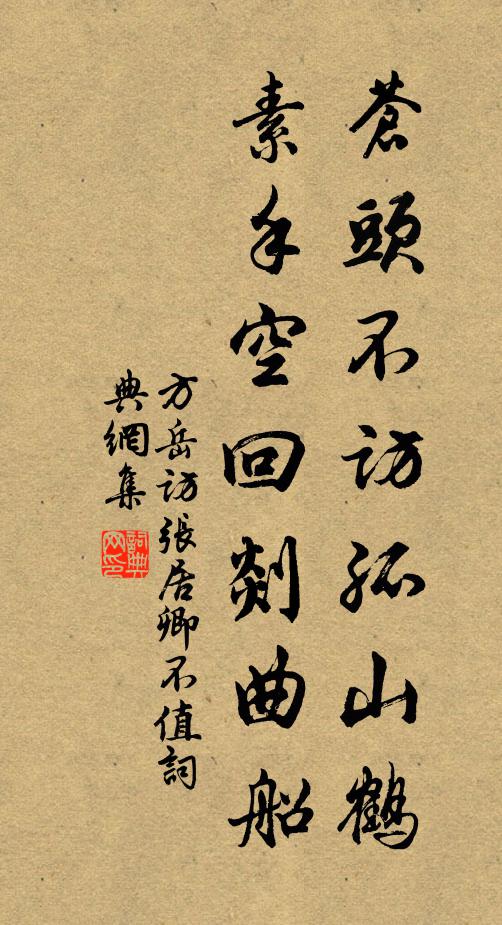 蒼頭不訪孤山鶴
素手空回剡曲船
方岳訪張居卿不值詞
典網集
詞典網印